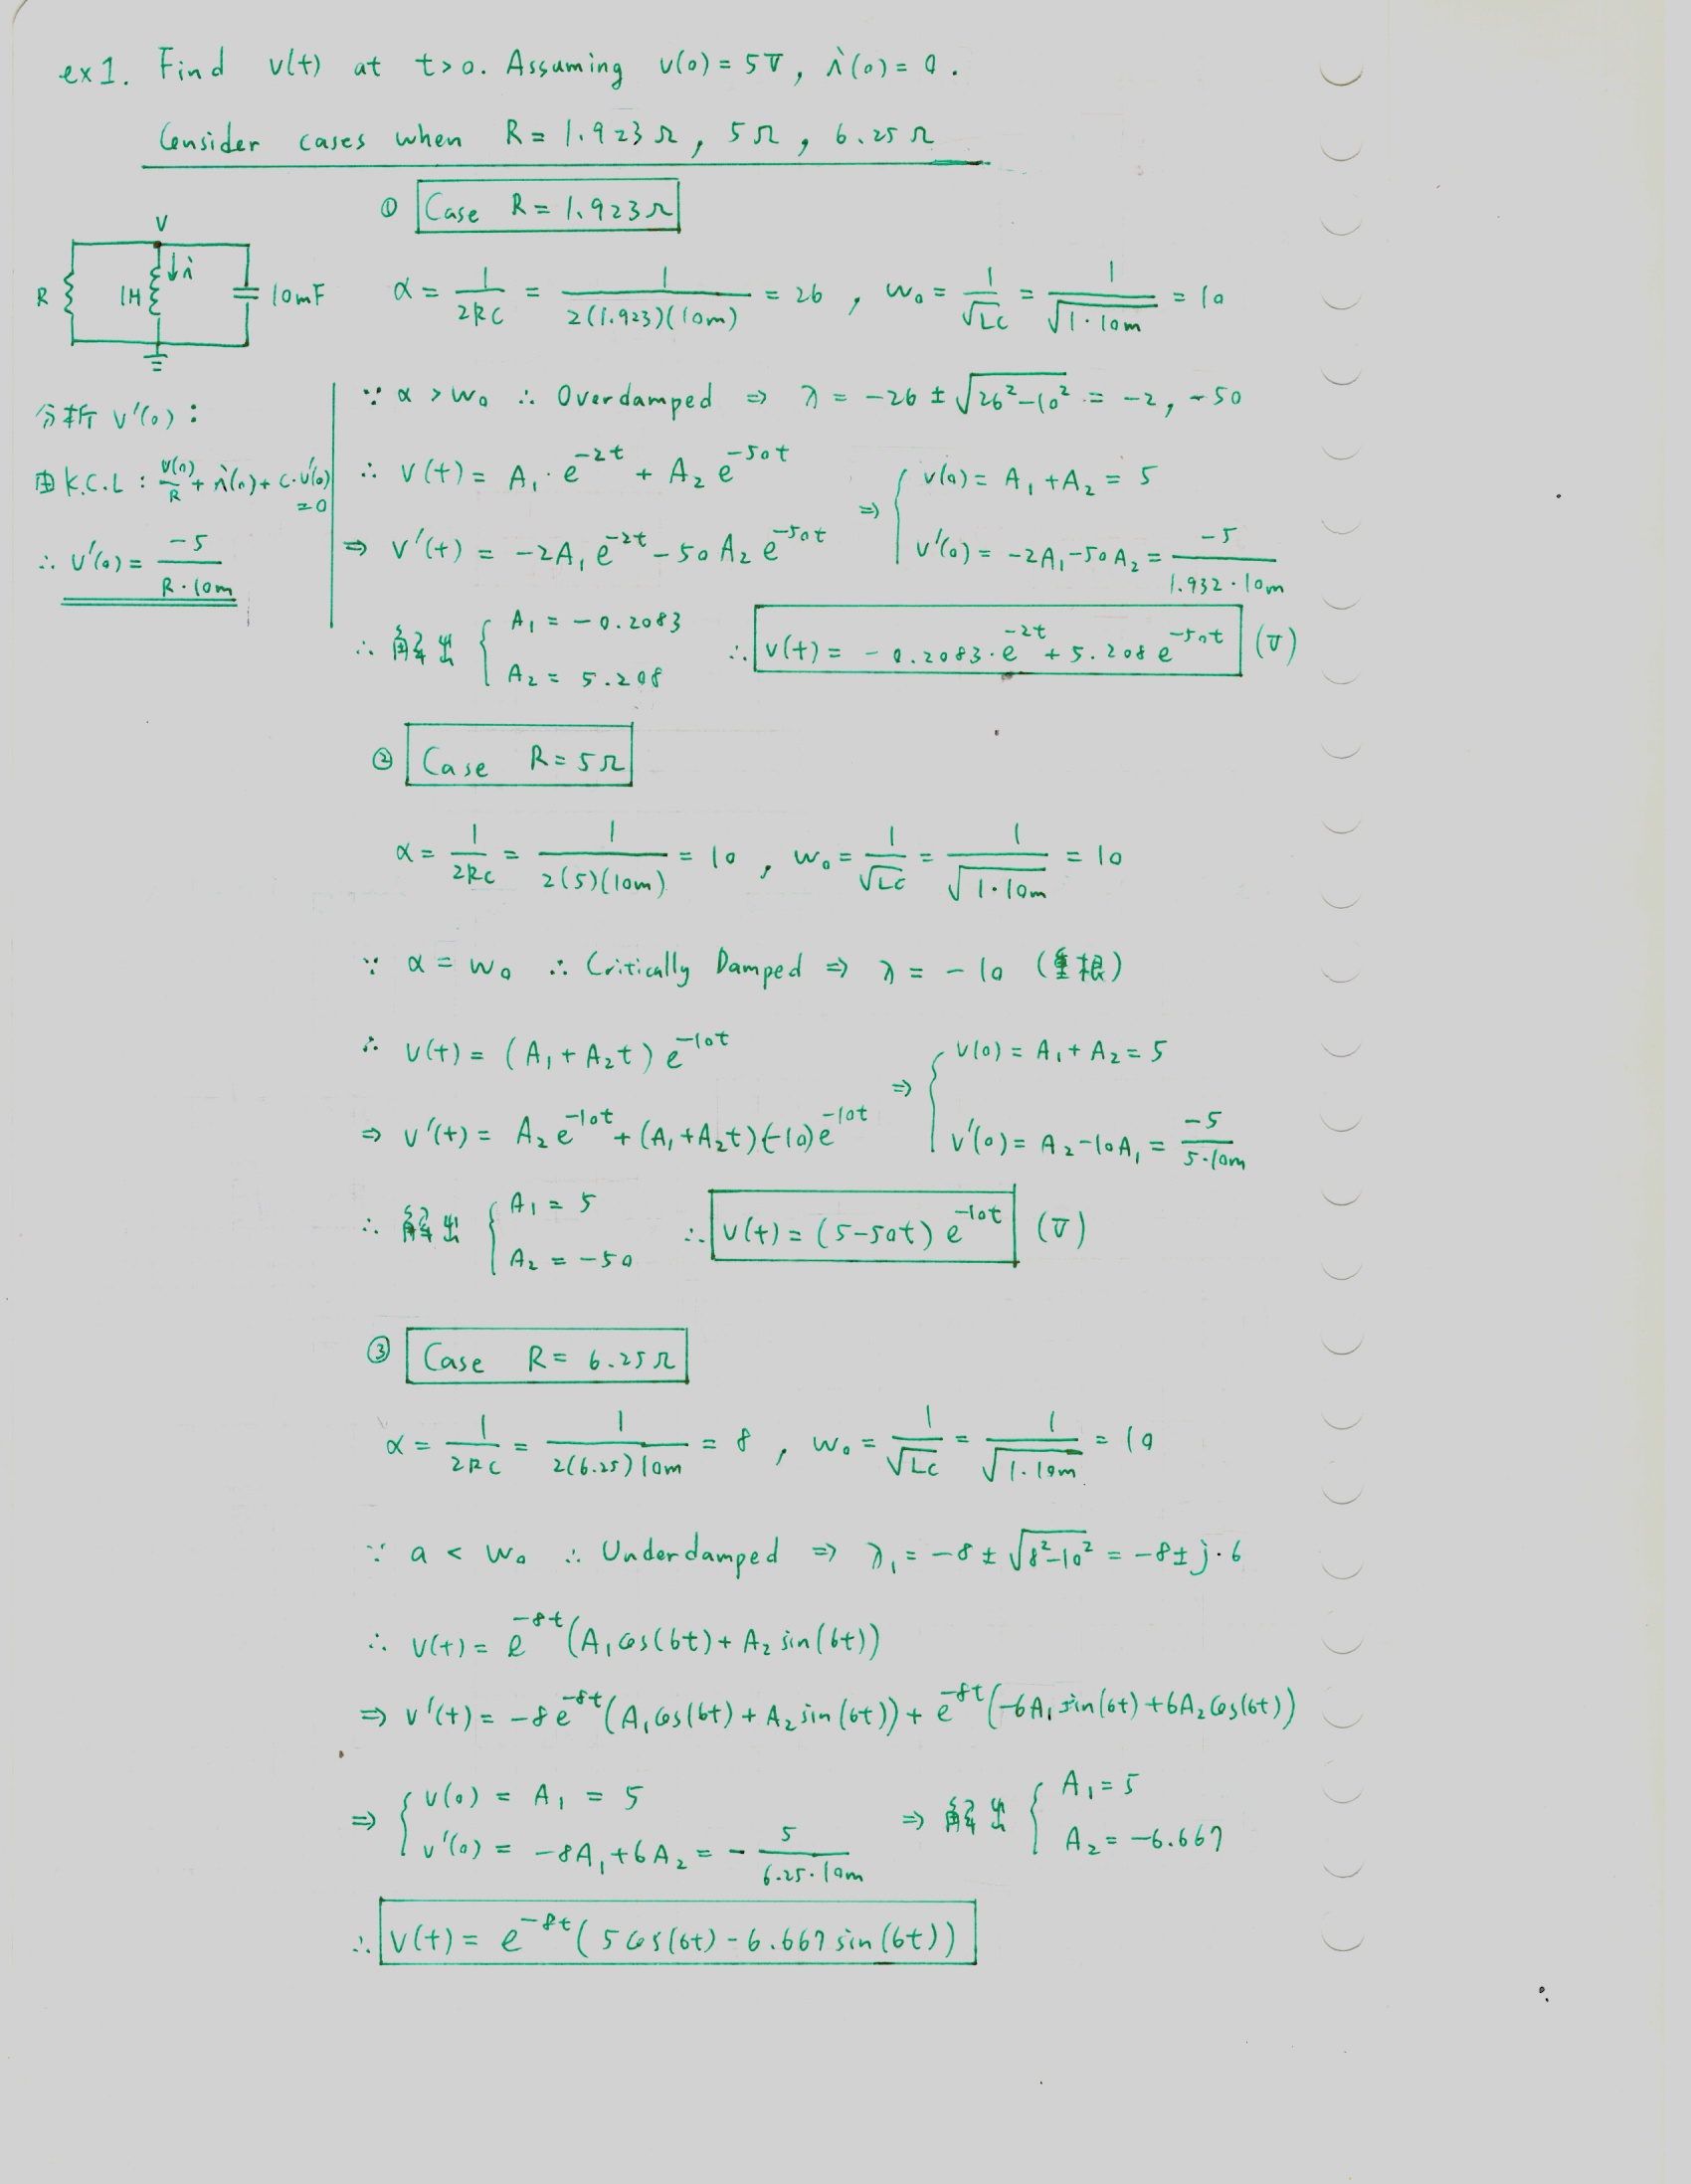 ex1. Find v(t) at t>0. Assuming v(0) = 5V, i(0) = 0.
Consider cases when R = 1.923Ω, 5Ω, 6.25Ω
V
R
1H
↓i
10mF
分析 V'(0) :
由 K.C.L : V(0)/R + i(0) + C·V'(0) = 0
∴ V'(0) = -5/(R·10m)
① Case R = 1.923Ω
α = 1/(2RC) = 1/(2(1.923)(10m)) = 26 , w₀ = 1/√(LC) = 1/√(1·10m) = 10
∵ α > w₀ ∴ Overdamped ⇒ λ = -26 ± √(26²-10²) = -2, -50
∴ V(t) = A₁·e^(-2t) + A₂e^(-50t)
⇒ V'(t) = -2A₁e^(-2t) - 50A₂e^(-50t)
⇒ { V(0) = A₁ + A₂ = 5
V'(0) = -2A₁ - 50A₂ = -5/(1.932·10m)
∴ 解出 { A₁ = -0.2083
A₂ = 5.208
∴ V(t) = -0.2083·e^(-2t) + 5.208e^(-50t) (V)
② Case R = 5Ω
α = 1/(2RC) = 1/(2(5)(10m)) = 10 , w₀ = 1/√(LC) = 1/√(1·10m) = 10
∵ α = w₀ ∴ Critically Damped ⇒ λ = -10 (重根)
∴ V(t) = (A₁ + A₂t) e^(-10t)
⇒ V'(t) = A₂e^(-10t) + (A₁+A₂t)(-10)e^(-10t)
⇒ { V(0) = A₁ + A₂ = 5
V'(0) = A₂ - 10A₁ = -5/(5·10m)
∴ 解出 { A₁ = 5
A₂ = -50
∴ V(t) = (5-50t) e^(-10t) (V)
③ Case R = 6.25Ω
α = 1/(2RC) = 1/(2(6.25)10m) = 8 , w₀ = 1/√(LC) = 1/√(1·10m) = 10
∵ a < w₀ ∴ Underdamped ⇒ λ₁ = -8 ± √(8²-10²) = -8 ± j·6
∴ V(t) = e^(-8t)(A₁cos(6t) + A₂sin(6t))
⇒ V'(t) = -8e^(-8t)(A₁cos(6t) + A₂sin(6t)) + e^(-8t)(-6A₁sin(6t) + 6A₂cos(6t))
⇒ { V(0) = A₁ = 5
V'(0) = -8A₁ + 6A₂ = -5/(6.25·10m)
⇒ 解出 { A₁ = 5
A₂ = -6.667
∴ V(t) = e^(-8t)(5cos(6t) - 6.667sin(6t))